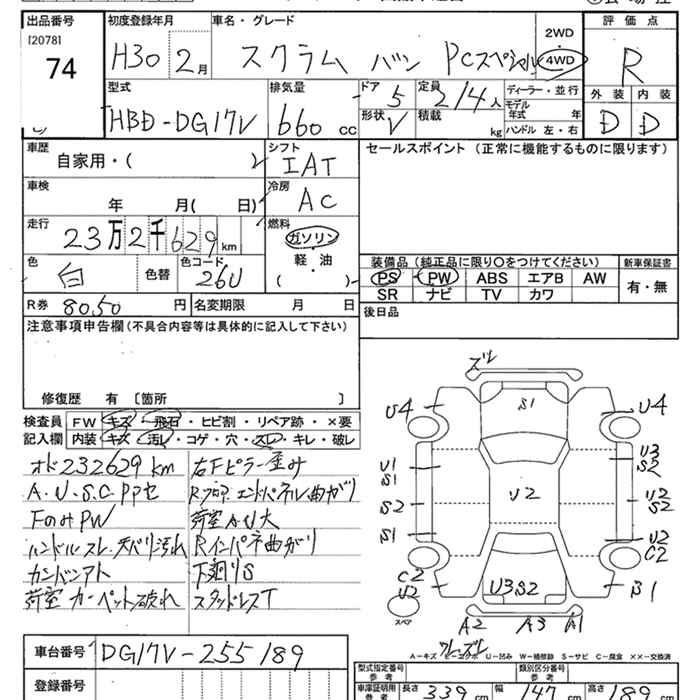 出品番号
[2078]
74
初度登録年月
H30 2月
車名・グレード
スクラム バン PCスペシャル
2WD
4WD
評価点
R
型式
HBD-DG17V
排気量
660 cc
ドア
5
定員
2/4人
形状
V
積載
kg
ディーラー・並行
モデル
年式 年
ハンドル 左・右
外装 内装
D D
車歴
自家用・( )
シフト
IAT
車検
年 月( 日)
冷房
AC
走行
23万2千629km
燃料
ガソリン
軽・油
( )
色
白
色替
色コード
26U
R券 8050 円
名変期限 月 日
セールスポイント (正常に機能するものに限ります)
装備品(純正品に限り○をつけてください)
新車保証書
PS PW ABS エアB AW
SR ナビ TV カワ
有・無
後日品
注意事項申告欄(不具合内容等は具体的に記入して下さい)
修復歴 有 〔箇所 〕
検査員
記入欄
FW キズ・飛石・ヒビ割・リペア跡・×要
内装 キズ・汚レ・コゲ・穴・スレ・キレ・破レ
オド232629km
A.U.S.C PPセ
FのみPW
ハンドルスレ 天バリ汚れ
カンバンアト
荷室カーペット破れ
右Fピラー歪み
Rフロア.エンドパネル曲がり
荷室AU大
Rインパネ曲がり
下廻りS
スタッドレスT
ズレ
S1
U4
U4
U1
S1
U3
S2
S2
U2
U2
S2
S1
U2
C2
C2
U2
U3S2
B1
スペア
A2 A3 A1
クレーズレ
A-キズ E-エクボ U-凹み W-補修跡 S-サビ C-腐食 ××-交換済
車台番号
DG17V-255189
登録番号
型式指定番号
参考
類別区分番号
参考
車庫証明用
参考
長さ 339 cm
幅 147 cm
高さ 189 cm